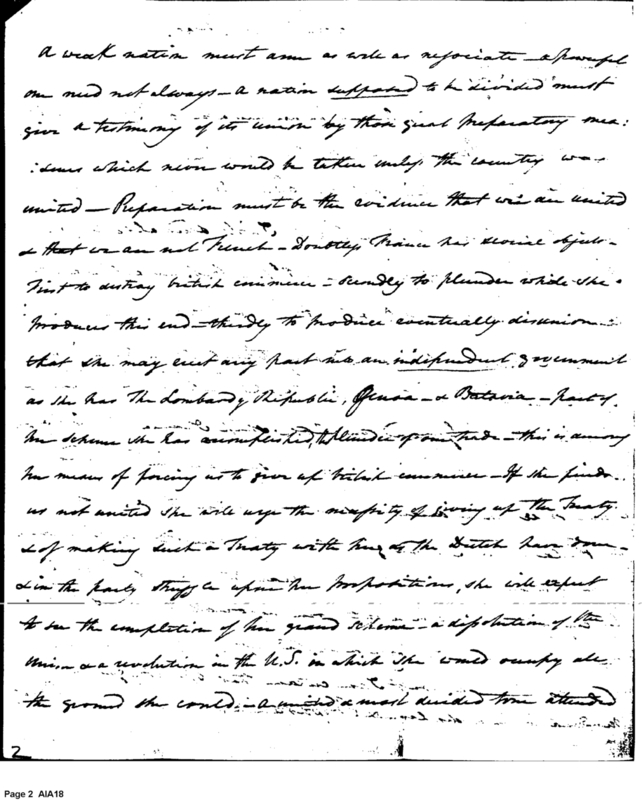 A weak nation must arm as well as negociate – a powerful
one need not always – A nation supposed to be divided must
give a testimony of its union by those great preparatory mea:
:sures which never would be taken unless the country was
united – Preparation must be the evidence that we are united
& that we are not French – Doubtless France has several objects –
First to destroy british commerce – secondly to plunder while she
produces this end – thirdly to produce eventually disunion
that she may erect any part into an independent government
as she has the Lombardy Republic, Genoa – & Batavia – part of
her scheme she has accomplished, the plunder of our trade – this is among
her means of forcing us to give up british commerce – If she finds
us not united she will urge the necessity of giving up the Treaty
& of making such a Treaty with her as the Dutch have done –
& in the party struggle upon her propositions, she will expect
to see the completion of her grand scheme – a dissolution of the
Union & a revolution in the U.S. in which she would occupy all
the ground she could – a united & most decided tone attended
2
Page 2 AIA18